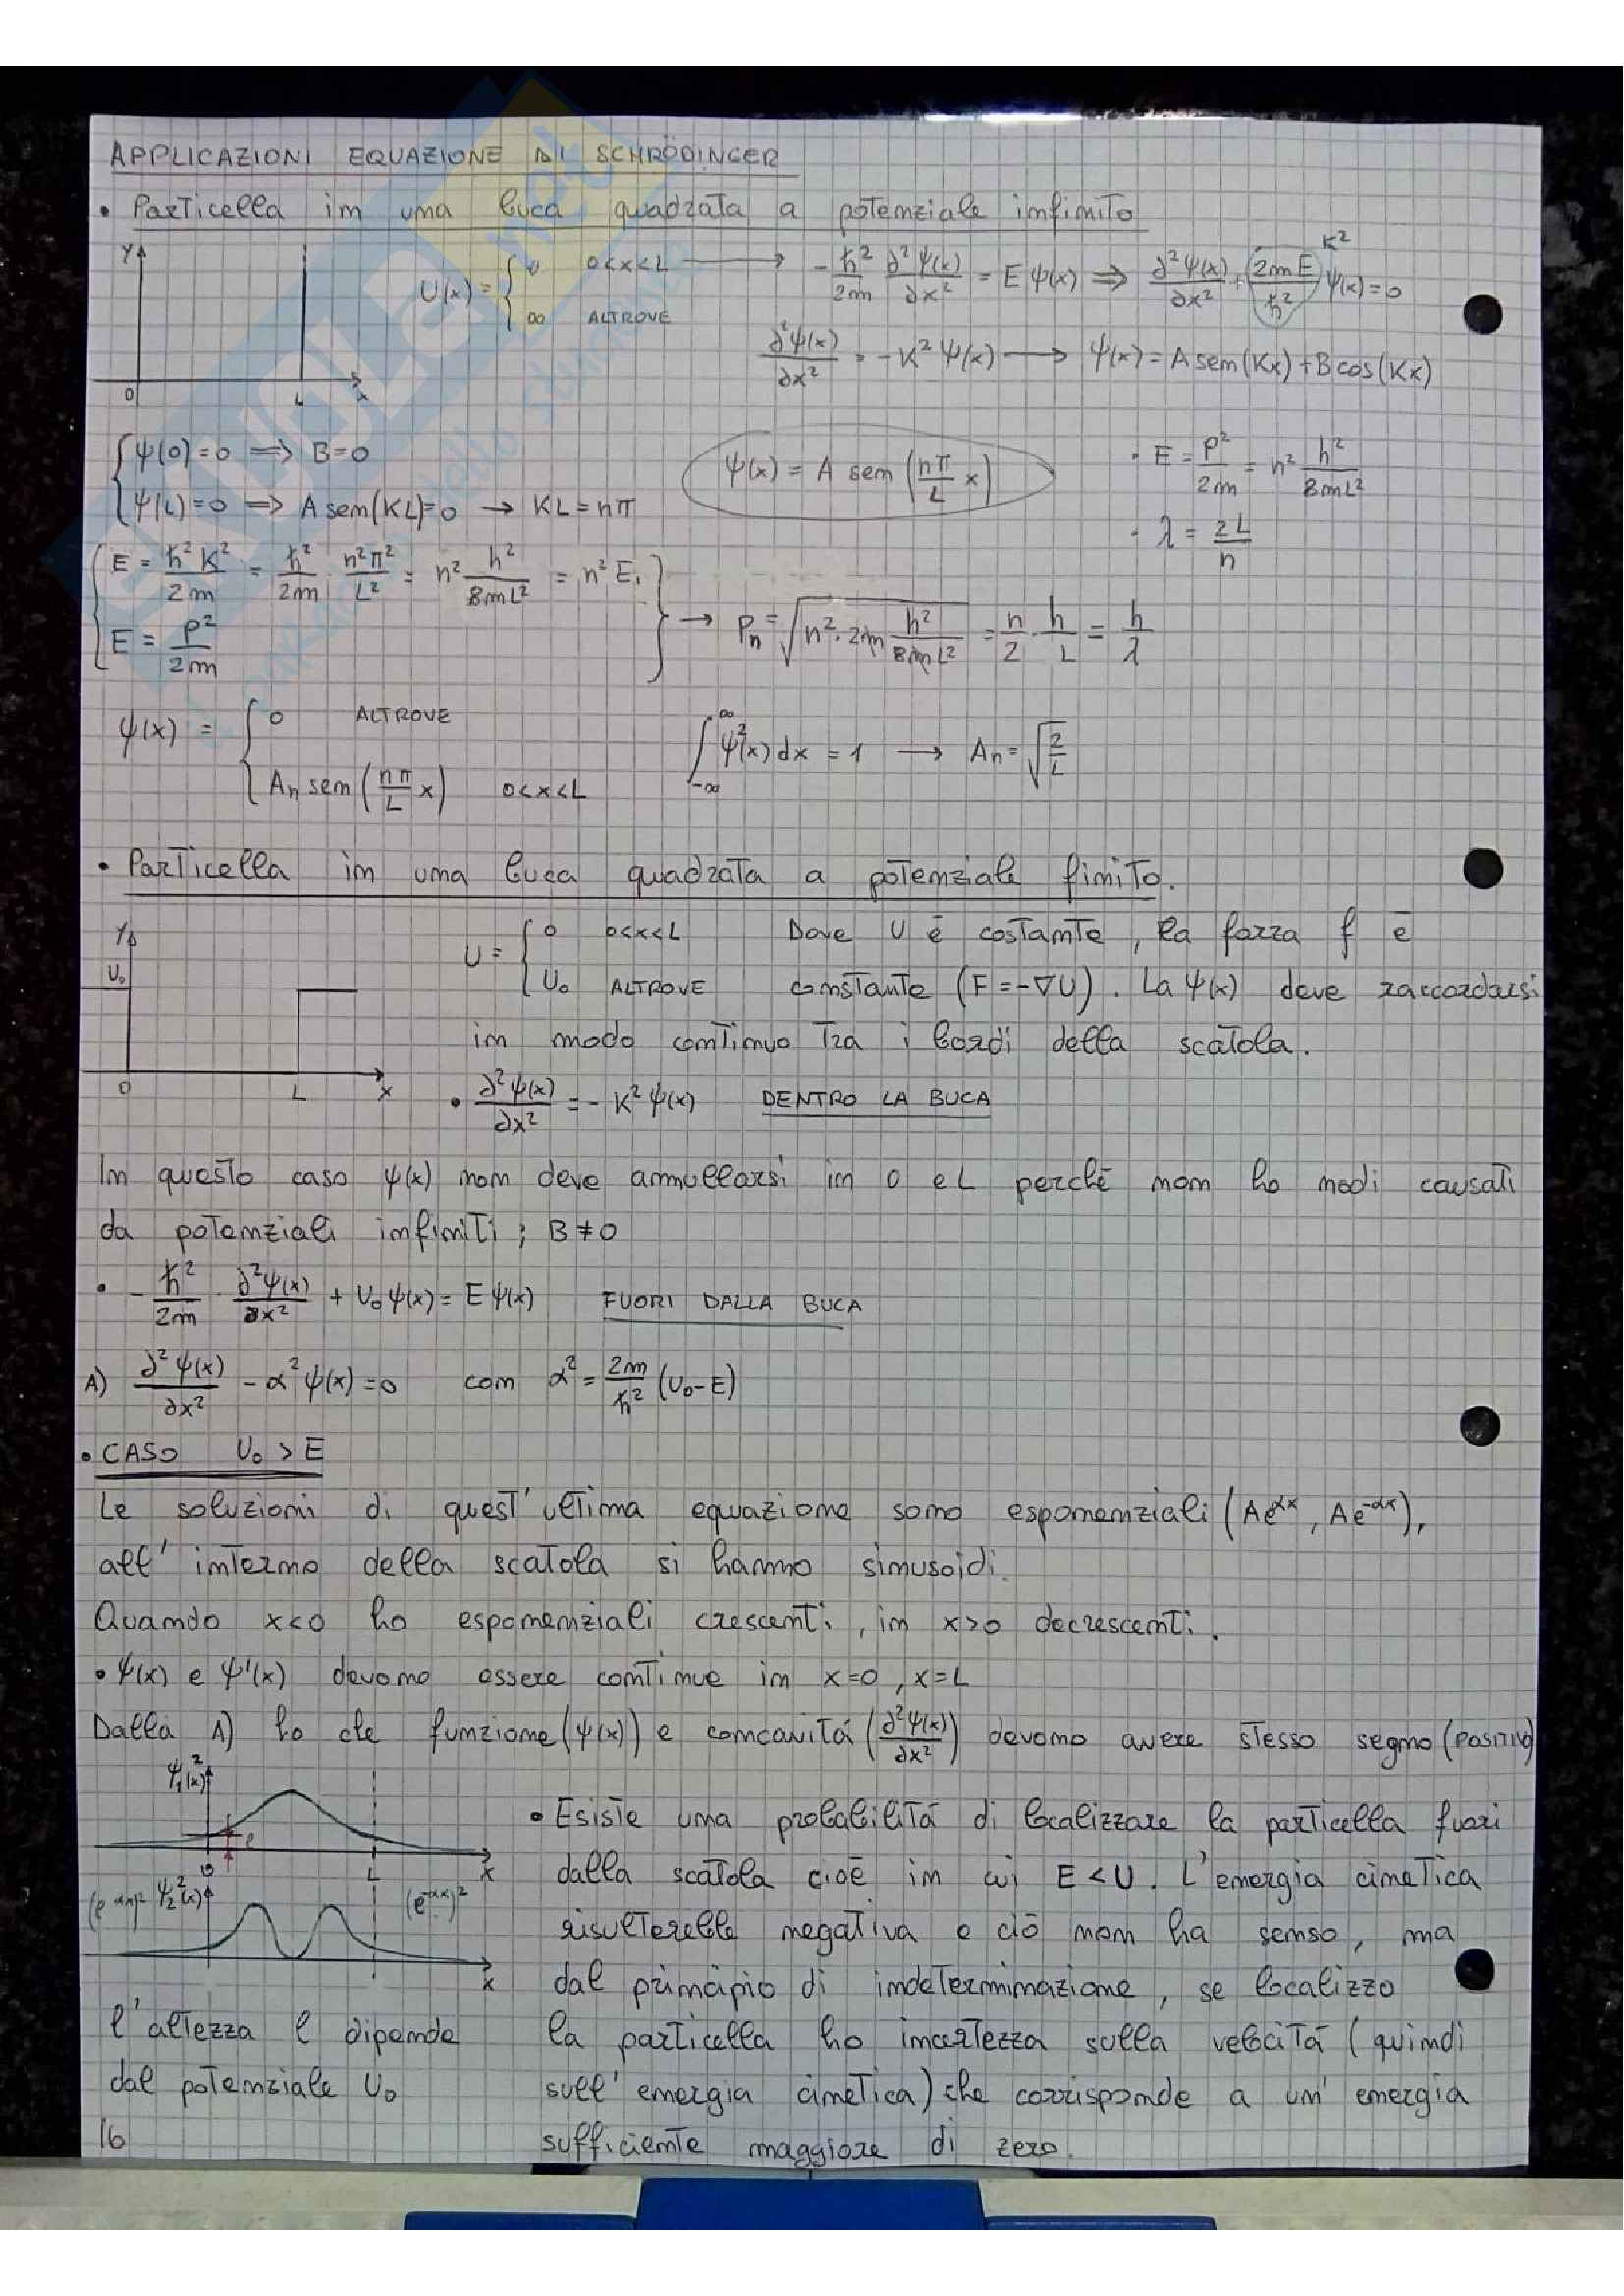 APPLICAZIONI EQUAZIONE DI SCHRÖDINGER
• Particella in una buca quadrata a potenziale infinito
Y 0 L x
U(x) = { 0 0<x<L → -ħ²/2m ∂²ψ(x)/∂x² = E ψ(x) ⇒ ∂²ψ(x)/∂x² + (2mE/ħ²) ψ(x) = 0 K²
∞ ALTROVE
∂²ψ(x)/∂x² = -K² ψ(x) → ψ(x) = A sen(Kx) + B cos(Kx)
{ ψ(0)=0 ⇒ B=0
ψ(L)=0 ⇒ A sen(KL)=0 → KL=nπ
ψ(x) = A sen (nπ/L x)
• E = P²/2m = n² h²/8mL²
• λ = 2L/n
{ E = ħ²K²/2m = ħ²/2m · n²π²/L² = n² h²/8mL² = n² E₁
E = P²/2m } → Pn = √(n²·2m h²/8mL²) = n/2 · h/L = h/λ
ψ(x) = { 0 ALTROVE
An sen (nπ/L x) 0<x<L
∫_{-∞}^{∞} ψ²(x) dx = 1 → An = √(2/L)
• Particella in una buca quadrata a potenziale finito.
Y U₀ 0 L x
U = { 0 0<x<L Dove U è costante, la forza f è
U₀ ALTROVE constante (F=-∇U). La ψ(x) deve raccordarsi
in modo continuo tra i bordi della scatola.
• ∂²ψ(x)/∂x² = -K² ψ(x) DENTRO LA BUCA
In questo caso ψ(x) non deve annullarsi in 0 e L perché non ho nodi causati
da potenziali infiniti; B≠0
• -ħ²/2m · ∂²ψ(x)/∂x² + U₀ ψ(x) = E ψ(x) FUORI DALLA BUCA
A) ∂²ψ(x)/∂x² - α² ψ(x) = 0 con α² = 2m/ħ² (U₀-E)
• CASO U₀ > E
Le soluzioni di quest'ultima equazione sono esponenziali (Ae^αx, Ae^-αx),
all'interno della scatola si hanno sinusoidi.
Quando x<0 ho esponenziali crescenti, in x>0 decrescenti.
• ψ(x) e ψ'(x) devono essere continue in x=0, x=L
Dalla A) ho che funzione (ψ(x)) e concavitá (∂²ψ(x)/∂x²) devono avere stesso segno (POSITIVO)
ψ₁²(x) l 0 L x
(e^αx)² ψ₂²(x) (e^-αx)² x
l'altezza l dipende
dal potenziale U₀
• Esiste una probabilitá di localizzare la particella fuori
dalla scatola cioè in cui E<U. L'energia cinetica
risulterebbe negativa e ciò non ha senso, ma
dal principio di indeterminazione, se localizzo
la particella ho incertezza sulla velocitá (quindi
sull'energia cinetica) che corrisponde a un'energia
sufficiente maggiore di zero.
16